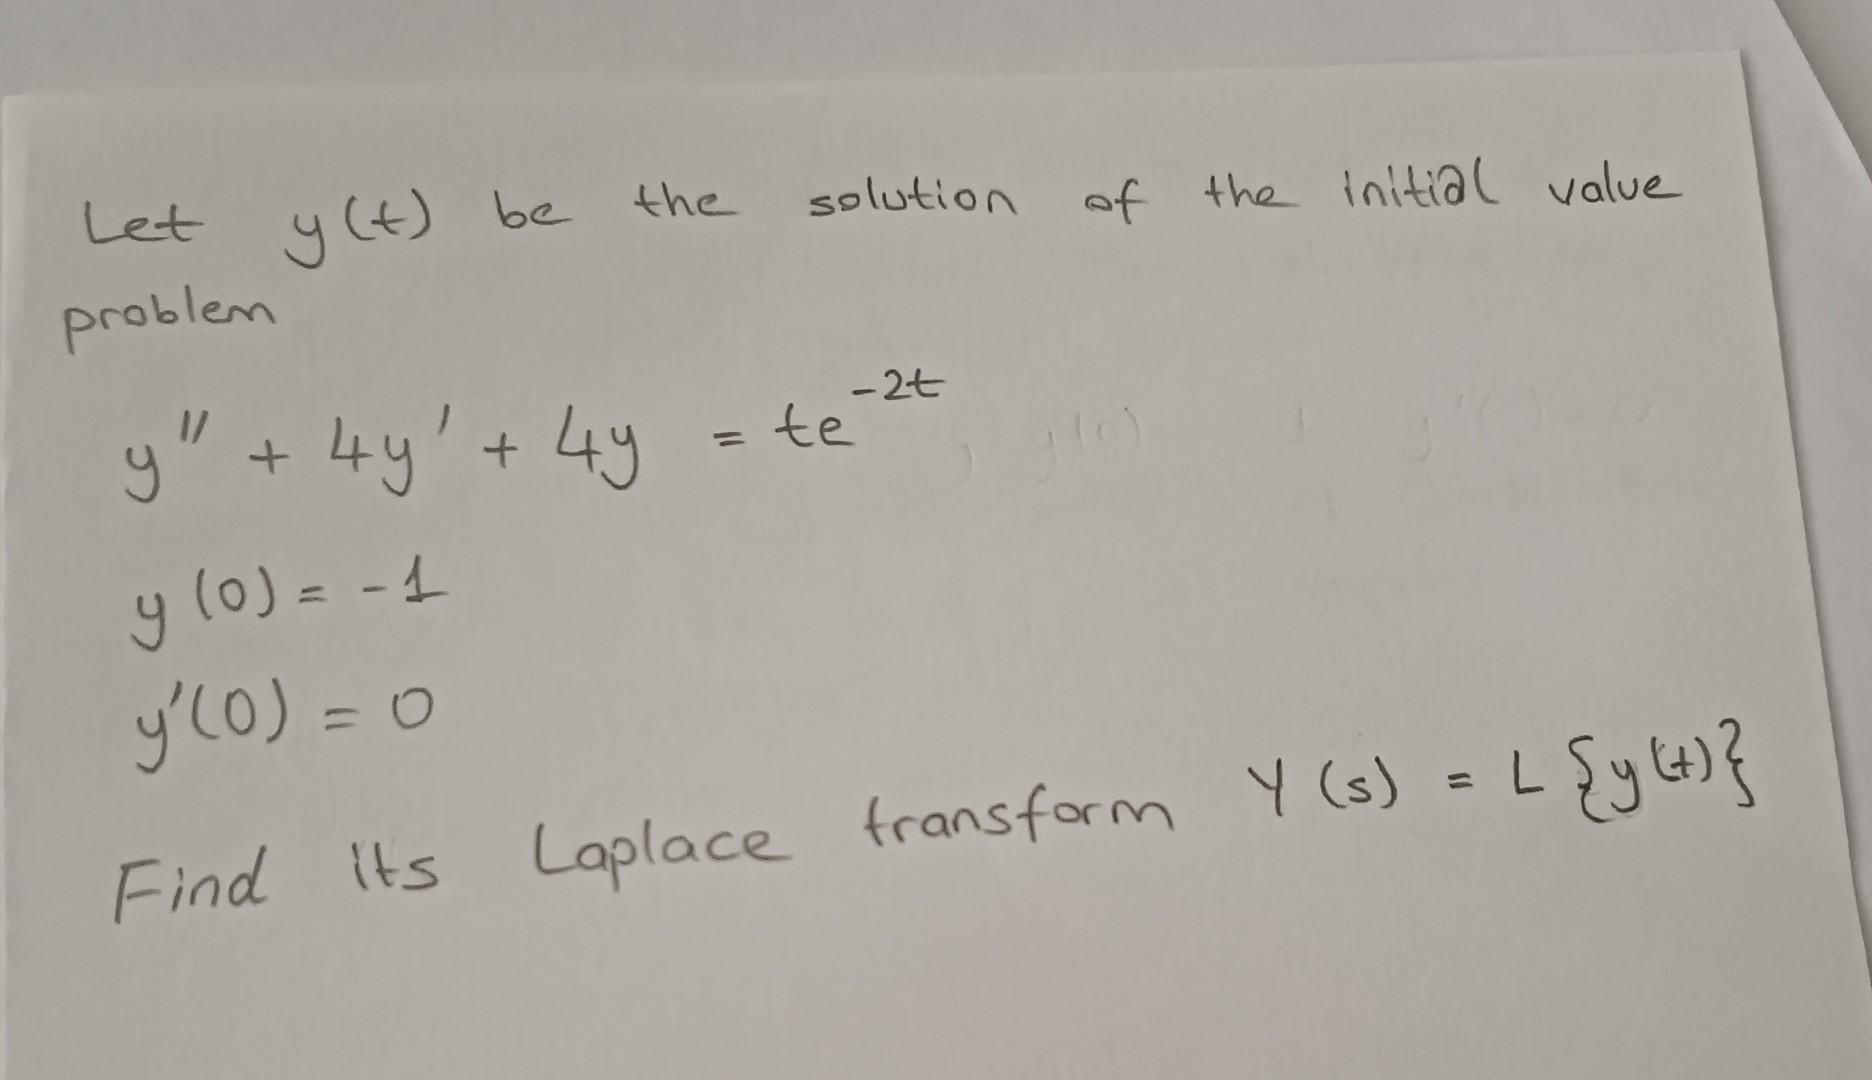 Let y(t) be the solution of the initial value
problem
y'' + 4y' + 4y = te^{-2t}
y(0) = -1
y'(0) = 0
Find its Laplace transform Y(s) = L{y(t)}